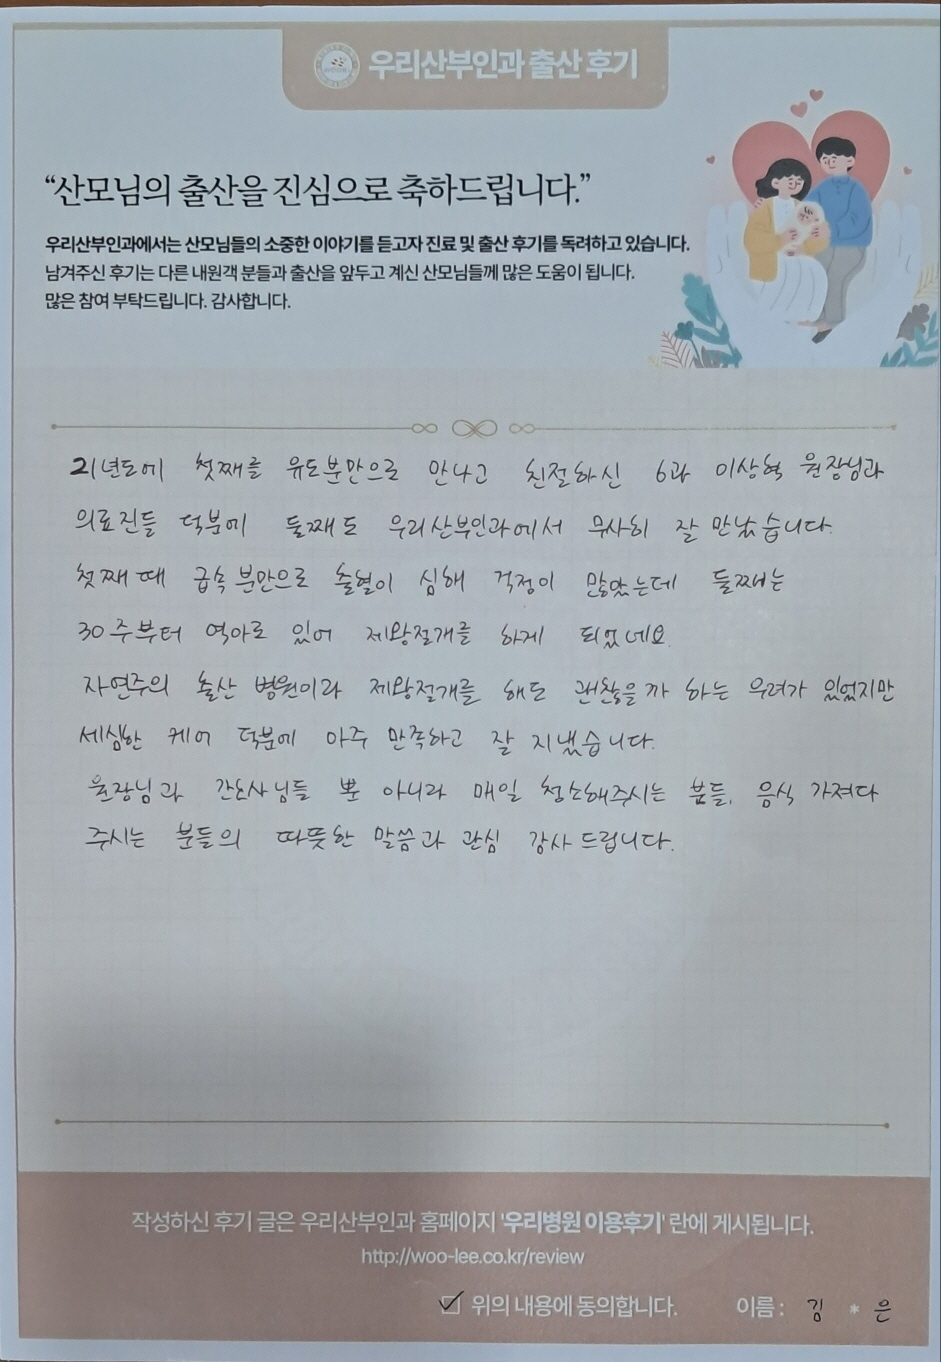 우리산부인과 출산 후기
“산모님의 출산을 진심으로 축하드립니다.”
우리산부인과에서는 산모님들의 소중한 이야기를 듣고자 진료 및 출산 후기를 독려하고 있습니다.
남겨주신 후기는 다른 내원객 분들과 출산을 앞두고 계신 산모님들께 많은 도움이 됩니다.
많은 참여 부탁드립니다. 감사합니다.
21년도에 첫째를 유도분만으로 만나고 친절하신 6과 이상혁 원장님과
의료진들 덕분에 둘째도 우리산부인과에서 무사히 잘 만났습니다.
첫째 때 급속분만으로 출혈이 심해 걱정이 많았는데 둘째는
30주부터 역아로 있어 제왕절개를 하게 되었네요
자연주의 출산 병원이라 제왕절개를 해도 괜찮을까 하는 우려가 있었지만
세심한 케어 덕분에 아주 만족하고 잘 지냈습니다.
원장님과 간호사님들 뿐 아니라 매일 청소해주시는 분들, 음식 가져다
주시는 분들의 따뜻한 말씀과 관심 감사드립니다.
작성하신 후기 글은 우리산부인과 홈페이지 '우리병원 이용후기' 란에 게시됩니다.
http://woo-lee.co.kr/review
위의 내용에 동의합니다. 이름 : 김 * 은